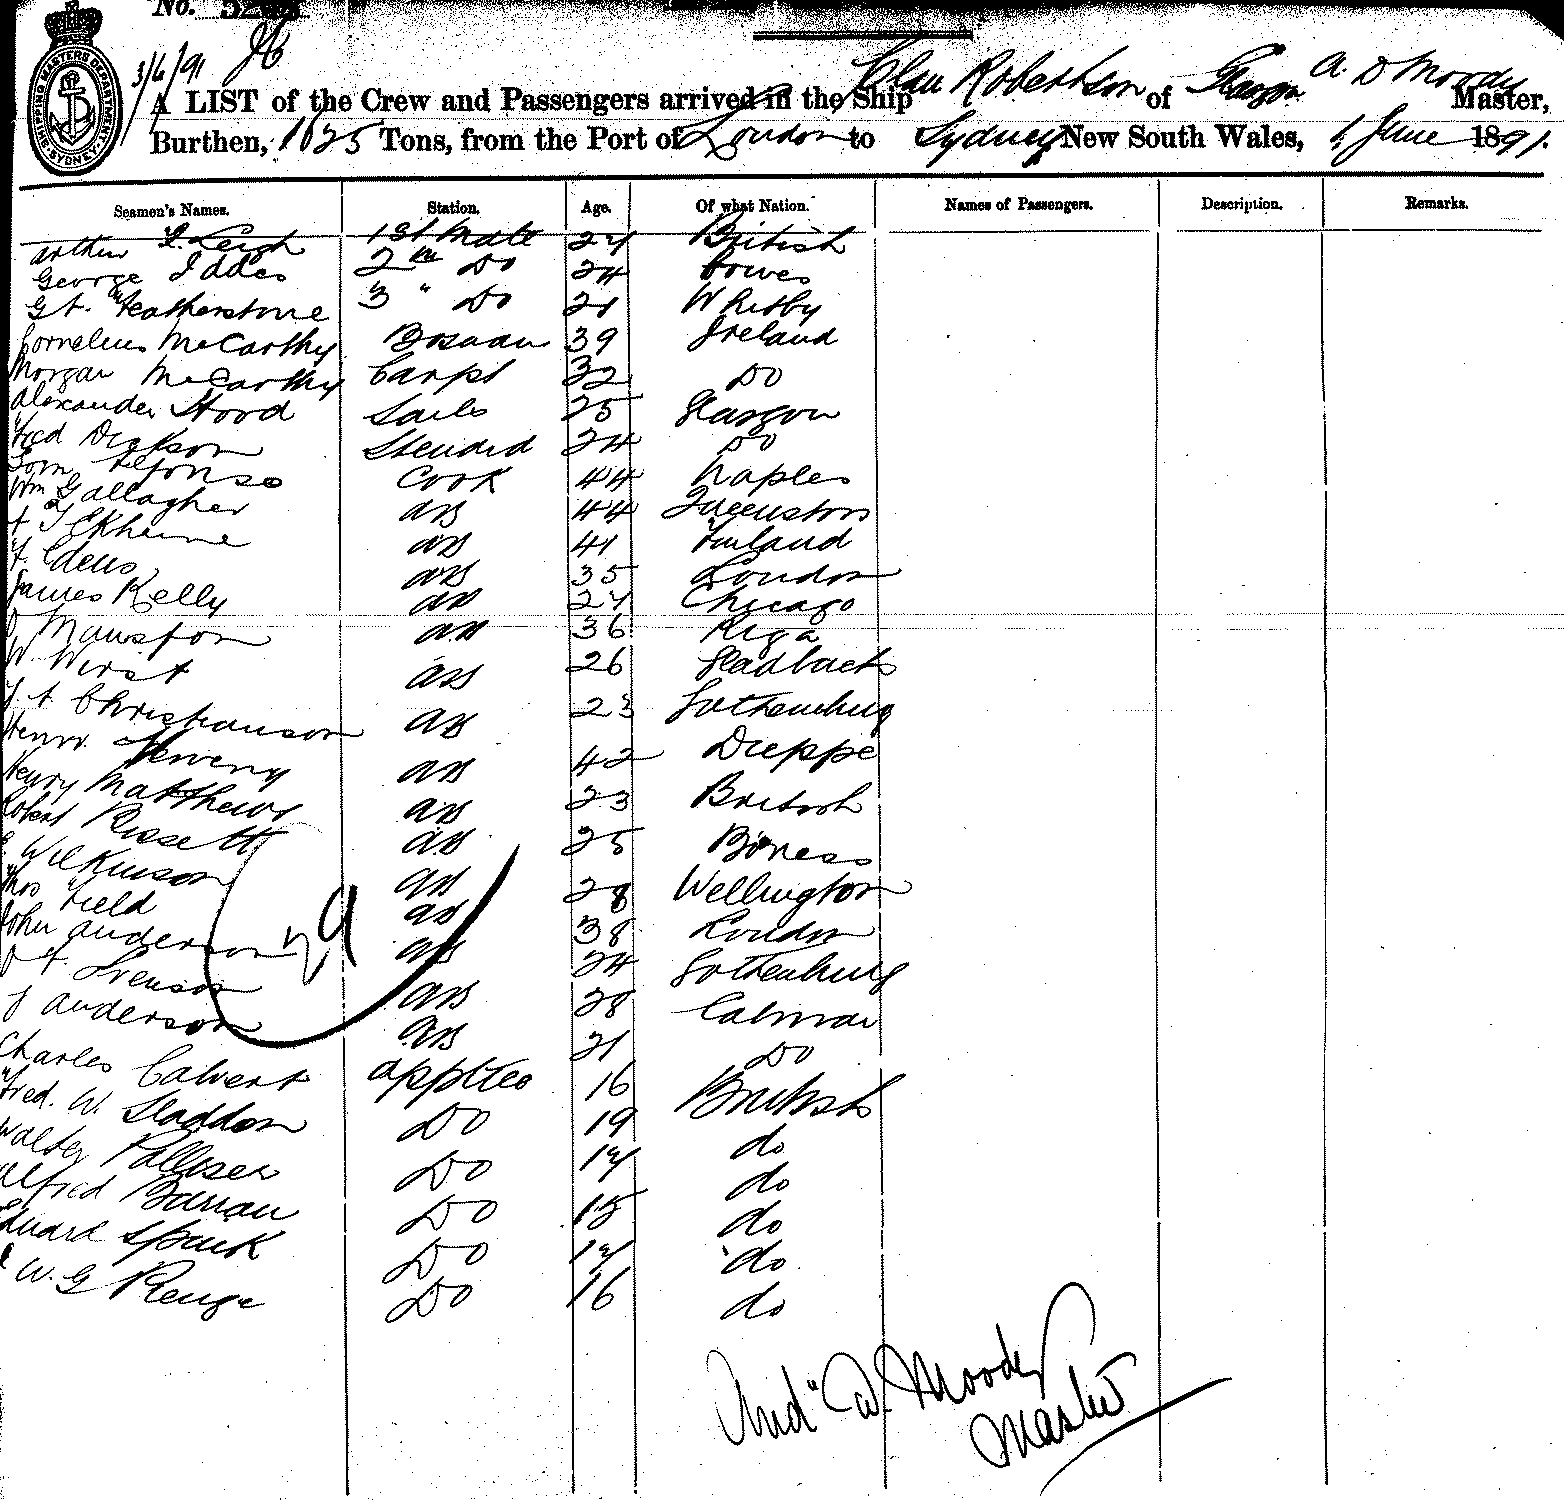 No. 52
SHIPPING MASTERS DEPARTMENT SYDNEY
3/6/91
A LIST of the Crew and Passengers arrived in the Ship Clan Robertson of Glasgow A. D Moody Master,
Burthen, 1625 Tons, from the Port of London to Sydney New South Wales, 1 June 1891.
Seamen's Names. Station. Age. Of what Nation. Names of Passengers. Description. Remarks.
Arthur L. Leigh 1st Mate 27 British
George Iddes 2nd Do 24 Cowes
G A. Featherstone 3 " Do 21 Whitby
Cornelius McCarthy Bosuan 39 Ireland
Morgan McCarthy Carpt 32 Do
Alexander Hood Sails 25 Glasgow
Fred Dickson Steuard 24 Do
Tom Alfonso Cook 44 Naples
Wm Gallagher AB 44 Queenstown
AB 41 Finland
F. Edens AB 35 London
James Kelly AB 27 Chicago
AB 36 Riga
W. Wirst AB 26 Gladbach
J. A Christianson AB 23 Gothenburg
Henry AB 42 Dieppe
Henry Matthews AB 23 British
Robert Rissett AB 25 Boness
Wilkinson AB 28 Wellington
Thos Field AB 38 London
John Anderson AB 24 Gothenburg
Svenson AB 28 Calmar
J Anderson AB 21 Do
Charles Calvert Apptces 16 British
Fred. W. Sladdon Do 19 do
Walter Palliser Do 17 do
Alfred Barran Do 15 do
Eduard Spark Do 17 do
W. G Do 16 do
29
Andw D. Moody
Master